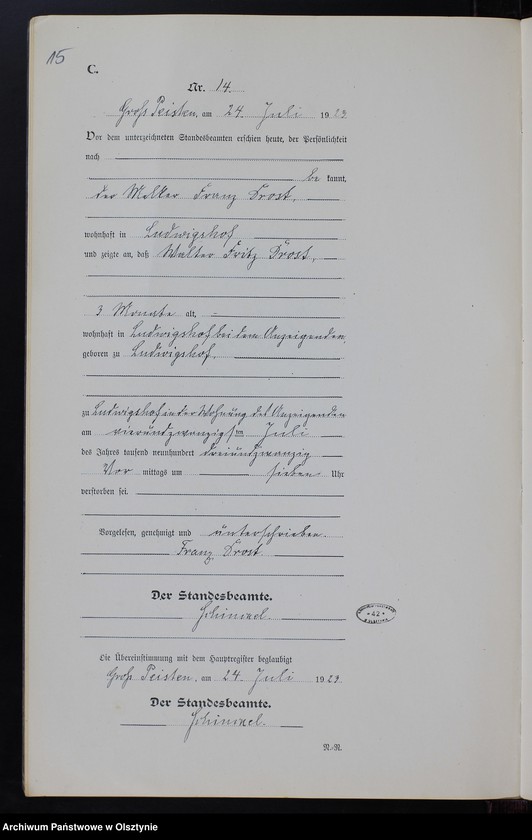 15
C.
Nr. 14.
Groß Peisten, am 24. Juli 1923.
Vor dem unterzeichneten Standesbeamten erschien heute, der Persönlichkeit
nach
be kannt,
der Melker Franz Drost,
wohnhaft in Ludwigshof
und zeigte an, daß Walter Fritz Drost,
3 Monate alt,
wohnhaft in Ludwigshof bei dem Anzeigenden,
geboren zu Ludwigshof,
zu Ludwigshof in der Wohnung des Anzeigenden
am vierundzwanzigsten Juli
des Jahres tausend neunhundert dreiundzwanzig
Vor mittags um sieben Uhr
verstorben sei.
Vorgelesen, genehmigt und unterschrieben.
Franz Drost.
Der Standesbeamte.
Schimmel.
42
Die Übereinstimmung mit dem Hauptregister beglaubigt
Groß Peisten, am 24. Juli 1923.
Der Standesbeamte.
Schimmel.
N.-R.
Archiwum Państwowe w Olsztynie